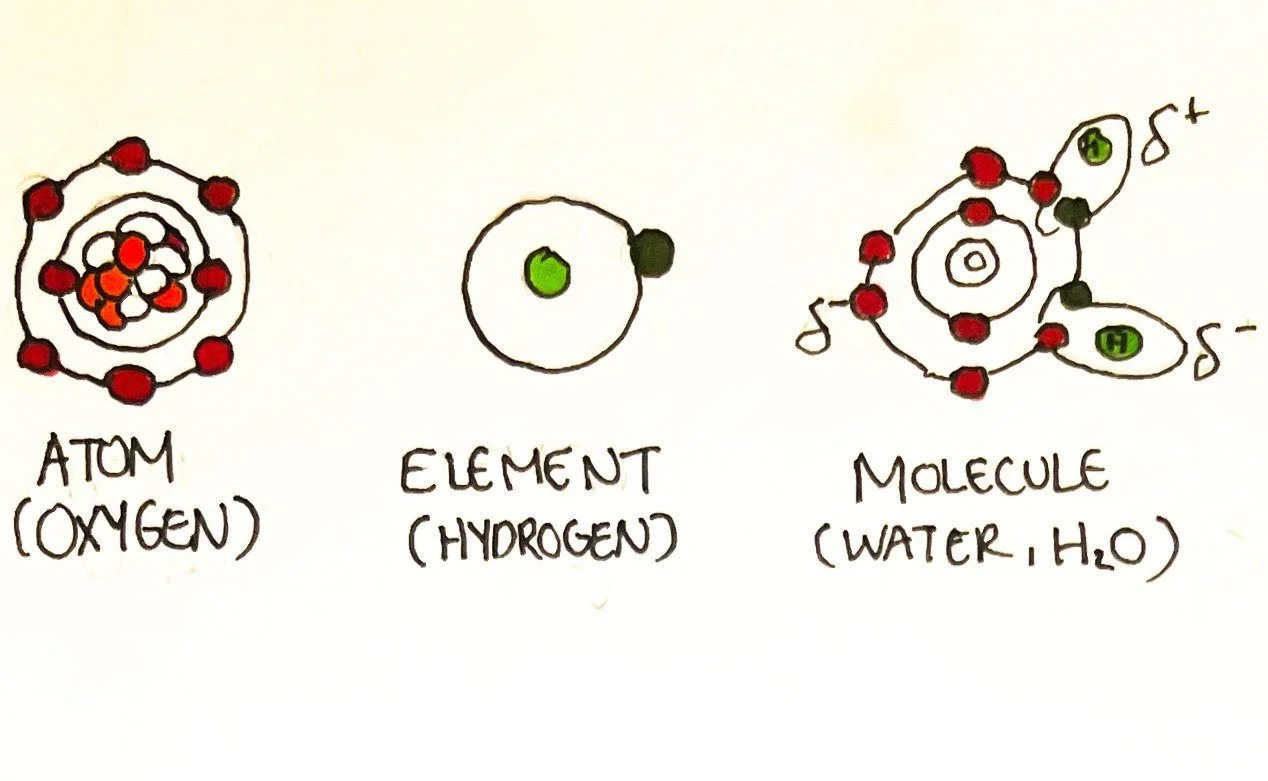 H
δ+
δ-
H
δ-
ATOM
(OXYGEN)
ELEMENT
(HYDROGEN)
O
MOLECULE
(WATER, H₂O)